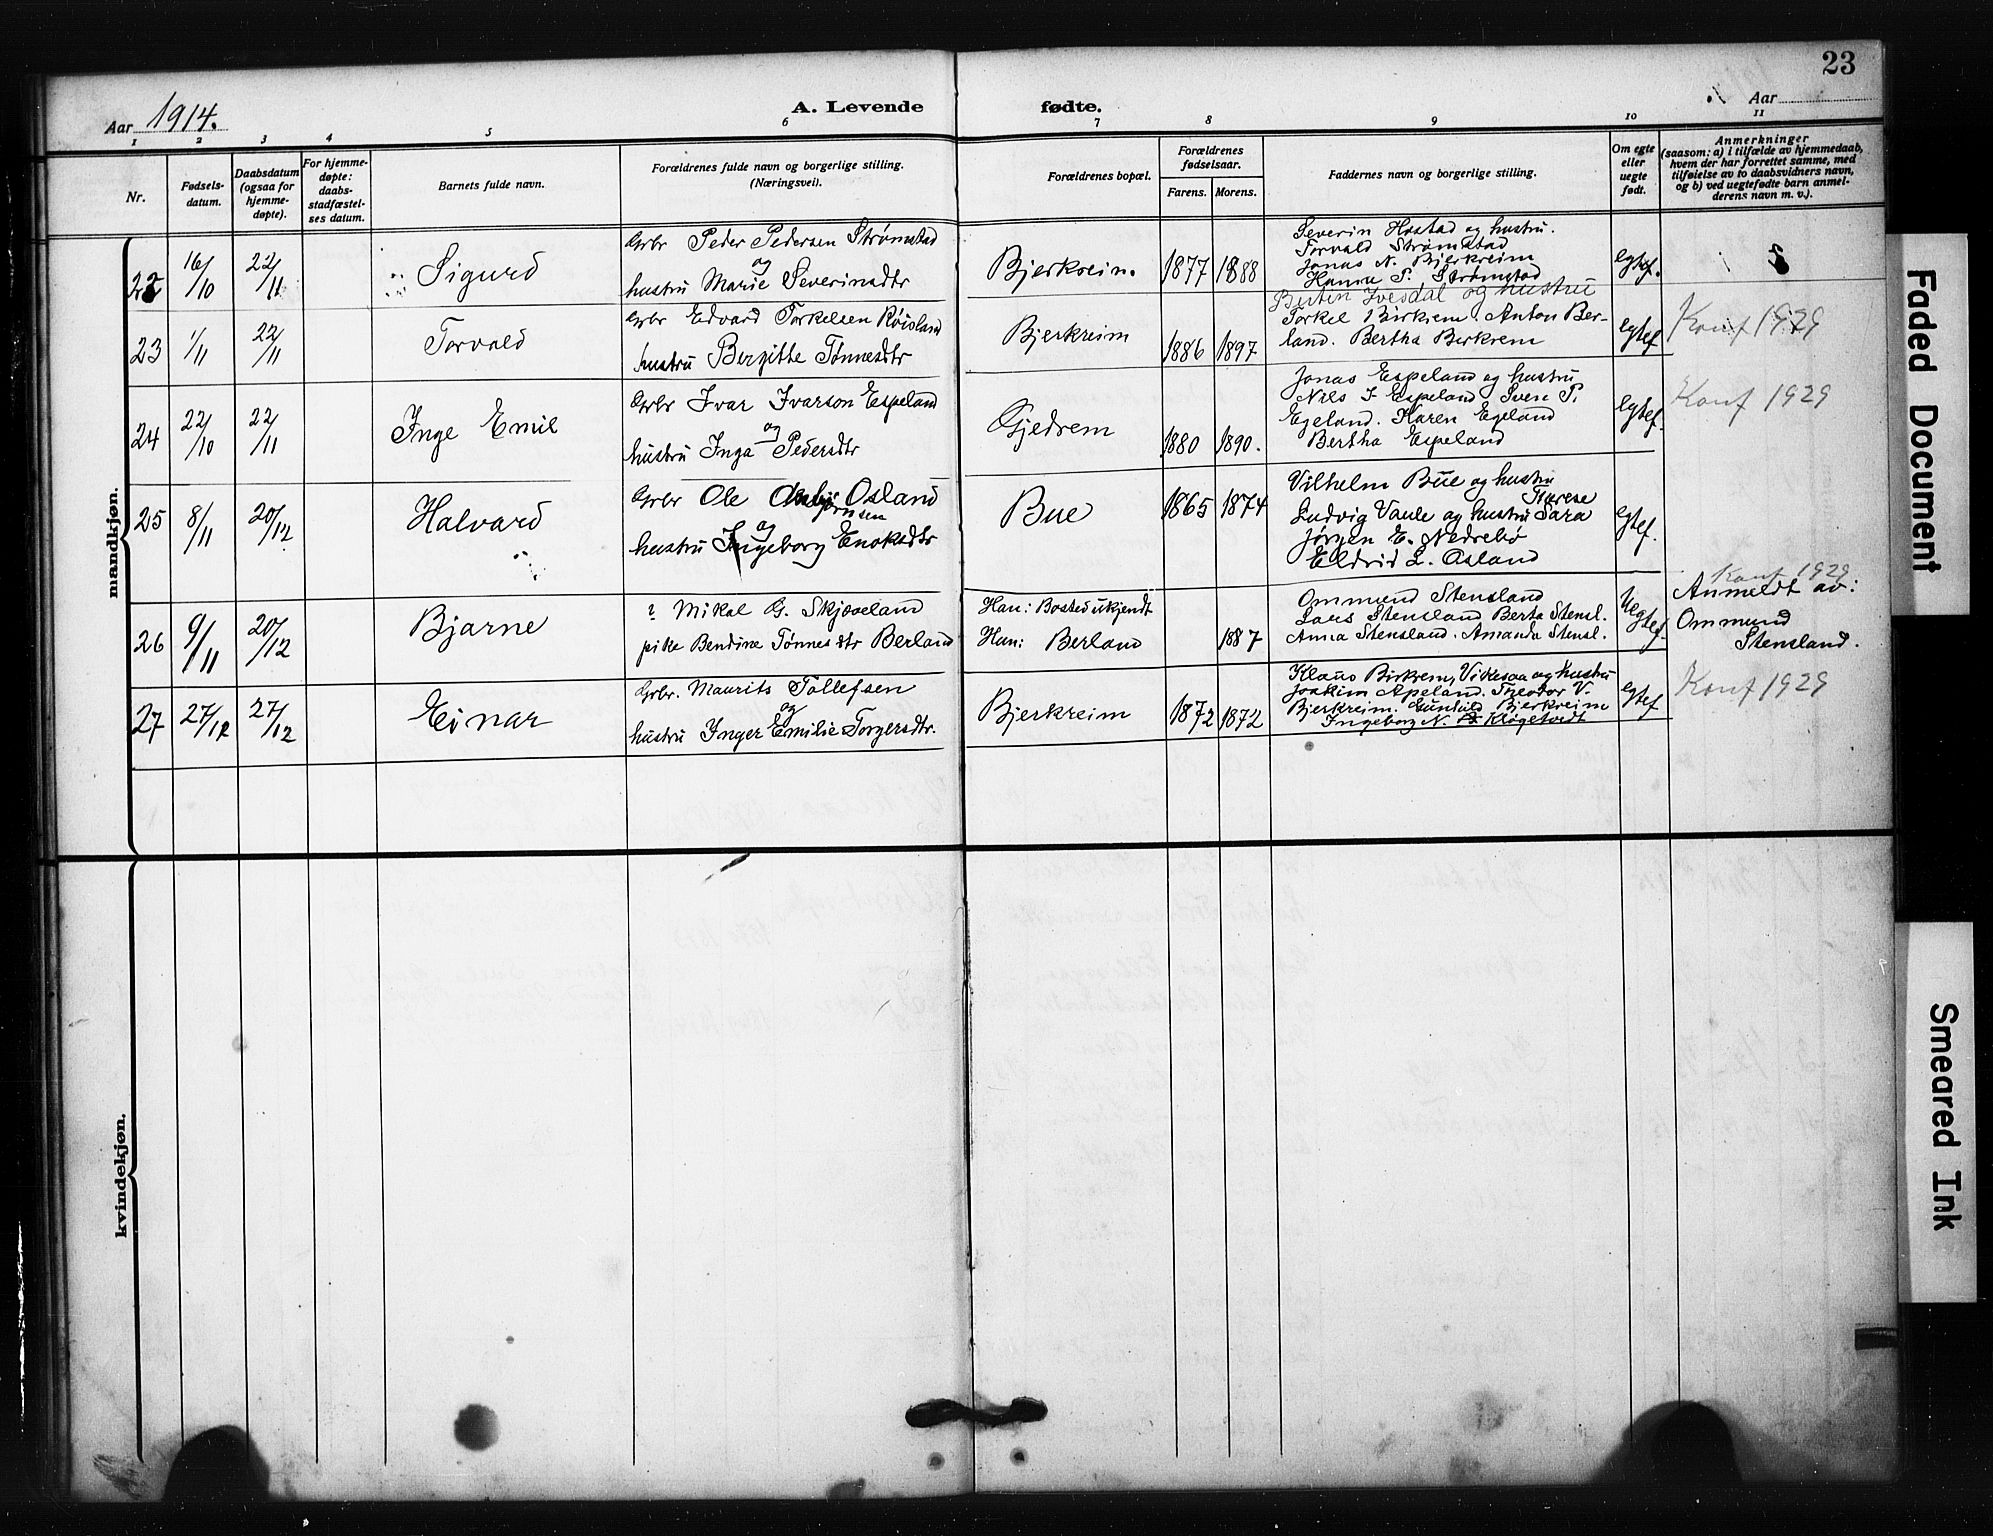 23
Aar 1914.
A. Levende fødte.
Aar
1 2 3 4 5 6 7 8 9 10 11
Nr.
Fødsels-
datum.
Daabsdatum
(ogsaa for
hjemme-
døpte).
For hjemme-
døpte:
daabs-
stadfæstel-
ses datum.
Barnets fulde navn.
Forældrenes fulde navn og borgerlige stilling.
(Næringsvei).
Forældrenes bopæl.
Forældrenes
fødselsaar.
Farens. Morens.
Faddernes navn og borgerlige stilling.
Om egte
eller
uegte
født.
Anmerkninger
(saasom: a) i tilfælde av hjemmedaab,
hvem der har forrettet samme, med
tilføielse av to daabsvidners navn,
og b) ved uegtefødte barn anmel-
derens navn m. v.).
mandkjøn.
22 16/10 22/11 Sigurd
Grbr Peder Pedersen Strømstad
og
hustru Marie Severinsdtr
Bjerkreim. 1877 1888
Severin Hostad og hustru.
Torvald Strømstad
Jonas N. Bjerkreim
Hanna P. Strømstad
egtef.
23 1/11 22/11 Torvald
Grbr Edvard Torkelsen Røisland
hustru Bergitte Tønnesdtr
Bjerkreim 1886 1897
Ivesdal og hustru
Torkel Birkrem. Anton Ber-
land. Bertha Birkrem
egtef
Konf 1929
24 22/10 22/11 Inge Emil
Grbr Ivar Ivarson Espeland
og
hustru Inga Pedersdtr
Gjedrem 1880 1890.
Jonas Espeland og hustru
Nils I Espeland Svein P.
Egeland. Karen Egeland
Bertha Espeland
egtef.
Konf 1929
25 8/11 20/12 Halvard
Grbr Ole Osland
og
hustru Ingeborg Enoksdtr
Bue 1865 1874
Vilhelm Bue og hustru
Terese
Ludvig Vaule og hustru Sara
Jørgen E. Nedrebø
Eldrid L. Osland
egtef.
Konf 1929
26 9/11 20/12 Bjarne
? Mikal G. Skjæveland
pike Bendine Tønnesdtr Berland
Han: Bosted ukjendt
Hun: Berland 1887
Ommund Stensland
Lars Stensland Berta Stensl.
Anna Stensland. Amanda Stensl.
Uegtef
Anmeldt av:
Ommund
Stensland.
27 27/12 27/12 Einar
Grbr. Maurits Tollefsen
og
hustru Inger Emilie Torgersdtr.
Bjerkreim 1872 1872
Klaus Birkrem, Vikesaa og hustru
Joakim Apeland. Theodor V.
Bjerkreim. Gunhild Bjerkreim
Ingeborg N. Kløgetvedt
egtef
Konf 1929
kvindekjøn.
Faded Document
Smeared Ink